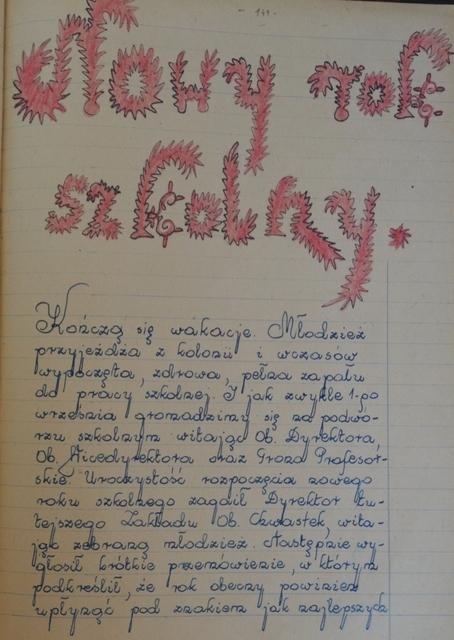 - 141 -
Nowy rok
szkolny.
Kończą się wakacje. Młodzież
przyjeżdża z kolonii i wczasów
wypoczęta, zdrowa, pełna zapału
do pracy szkolnej. I jak zwykle 1-go
września gromadzimy się na podwó-
rzu szkolnym witając Ob. Dyrektora
Ob. Vicedyrektora oraz Grono Profesor-
skie. Uroczystość rozpoczęcia nowego
roku szkolnego zagaił Dyrektor tu-
tejszego Zakładu Ob. Chwastek, wita-
jąc zebraną młodzież. Następnie wy-
głosił krótkie przemówienie, w którym
podkreślił, że rok obecny powinien
upłynąć pod znakiem jak najlepszych